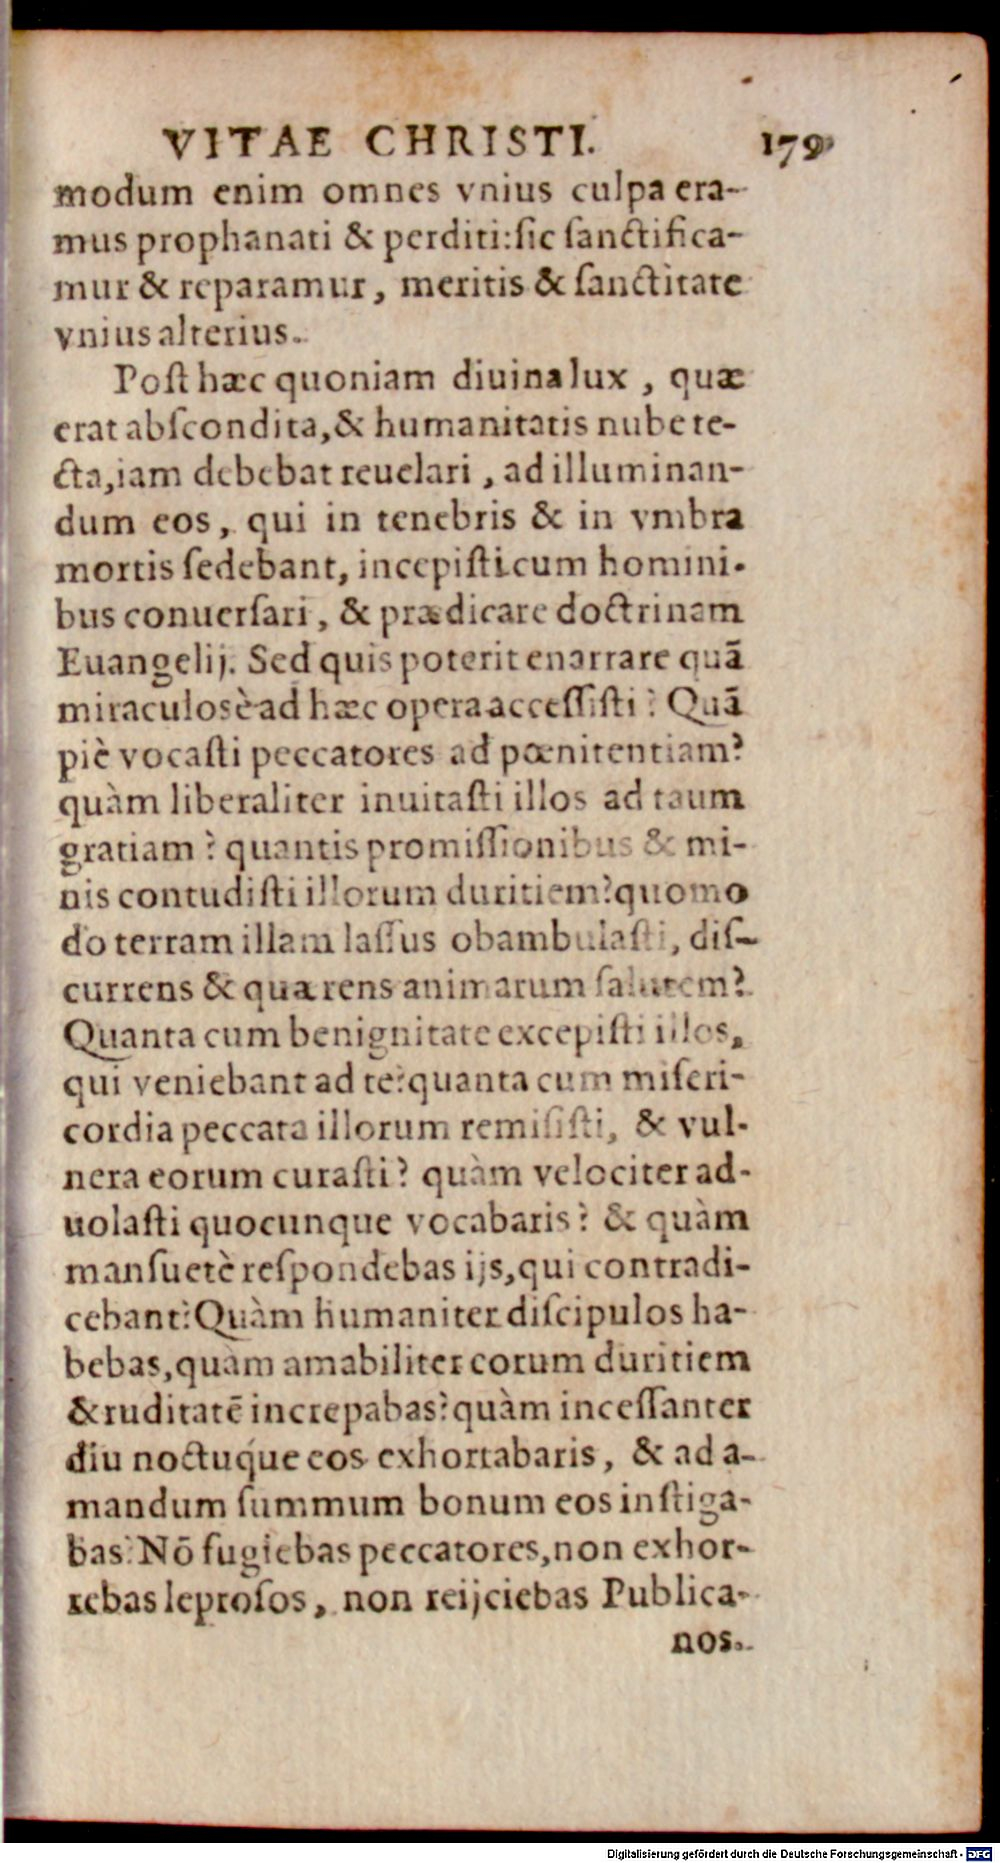 VITAE CHRISTI. 179
modum enim omnes vnius culpa era-
mus prophanati & perditi: sic sanctifica-
mur & reparamur, meritis & sanctitate
vnius alterius.
Post hæc quoniam diuina lux, quæ
erat abscondita, & humanitatis nube te-
cta, iam debebat reuelari, ad illuminan-
dum eos, qui in tenebris & in vmbra
mortis sedebant, incepisti cum homini-
bus conuersari, & prædicare doctrinam
Euangelij. Sed quis poterit enarrare quā
miraculosè ad hæc opera accessisti? Quā
piè vocasti peccatores ad pœnitentiam?
quàm liberaliter inuitasti illos ad tuum
gratiam? quantis promissionibus & mi-
nis contudisti illorum duritiem? quomo
do terram illam lassus obambulasti, dis-
currens & quærens animarum salutem?
Quanta cum benignitate excepisti illos,
qui veniebant ad te? quanta cum miseri-
cordia peccata illorum remisisti, & vul-
nera eorum curasti? quàm velociter ad-
uolasti quocunque vocabaris? & quàm
mansuetè respondebas ijs, qui contradi-
cebant? Quàm humaniter discipulos ha-
bebas, quàm amabiliter eorum duritiem
& ruditatē increpabas? quàm incessanter
diu noctuque eos exhortabaris, & ad a-
mandum summum bonum eos instiga-
bas? Nō fugiebas peccatores, non exhor-
rebas leprosos, non reijciebas Publica-
nos.
Digitalisierung gefördert durch die Deutsche Forschungsgemeinschaft - DFG